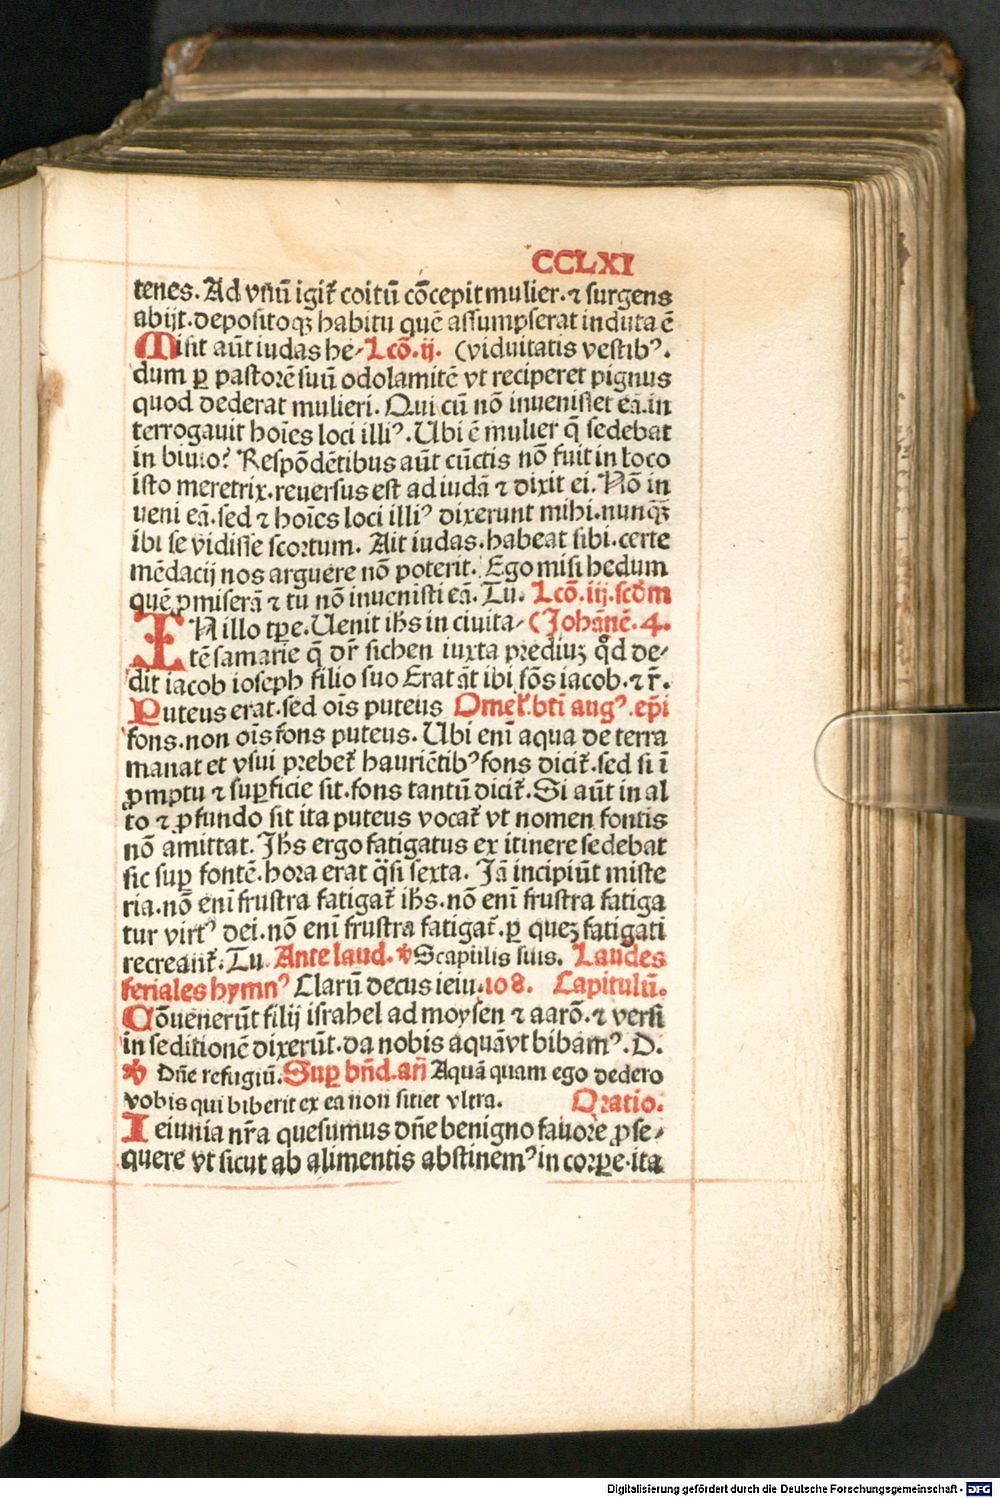 CCLXI
tenes. Ad vnũ igit̃ coitũ cõcepit mulier. ⁊ surgens
abijt. depositoqꝫ habitu quẽ assumpserat induta ẽ
Misit aũt iudas he⸗ Lcõ. ij. (viduitatis vestibꝰ.
dum ꝑ pastorẽ suũ odolamitẽ vt reciperet pignus
quod dederat mulieri. Qui cũ nõ inuenisset eã. in
terrogauit hoĩes loci illiꝰ. Ubi ẽ mulier q̃ sedebat
in biuio? Respõdẽtibus aũt cũctis nõ fuit in loco
isto meretrix. reuersus est ad iudã ⁊ dixit ei. Nõ in
ueni eã. sed ⁊ hoĩes loci illiꝰ dixerunt mihi. nunqꝫ̃
ibi se vidisse scortum. Ait iudas. habeat sibi. certe
mẽdacij nos arguere nõ poterit. Ego misi hedum
quẽ ꝓmiserã ⁊ tu nõ inuenisti eã. Tu. Lcõ. iij. scd̃m
IN illo tꝑe. Uenit ih̃s in ciuita⸗ (Johãnẽ. 4.
tẽ samarie q̃ dr̃ sichen iuxta prediuꝫ qd̃ de⸗
dit iacob ioseph filio suo Erat aũt ibi fõs iacob. ⁊ r̃.
Puteus erat. sed oĩs puteus Omel̃. bt̃i augꝰ. ep̃i
fons. non oĩs fons puteus. Ubi enĩ aqua de terra
manat et vsui prebet̃ hauriẽtibꝰ fons dicit̃. sed si ĩ
ꝓmptu ⁊ suꝑficie sit. fons tantũ dicit̃. Si aũt in al
to ⁊ ꝓfundo sit ita puteus vocat̃ vt nomen fontis
nõ amittat. Jh̃s ergo fatigatus ex itinere sedebat
sic suꝑ fontẽ. hora erat q̃si sexta. Jã incipiũt miste
ria. nõ enĩ frustra fatigat̃ ih̃s. nõ enĩ frustra fatiga
tur virtꝰ dei. nõ enĩ frustra fatigat̃. ꝑ queꝫ fatigati
recreant̃. Tu. Ante laud. ℣ Scapulis suis. Laudes
feriales hymnꝰ Clarũ decus ieiu. 108. Capitulũ.
Cõuenerũt filij israhel ad moysen ⁊ aarõ. ⁊ versi
in seditionẽ dixerũt. da nobis aquã vt bibamꝰ. D.
℣ Dñe refugiũ. Suꝑ bñd. añ Aquã quam ego dedero
vobis qui biberit ex ea non sitiet vltra. Oratio.
Ieiunia nr̃a quesumus dñe benigno fauore ꝓse⸗
quere vt sicut ab alimentis abstinemꝰ in corꝑe. ita
Digitalisierung gefördert durch die Deutsche Forschungsgemeinschaft - DFG